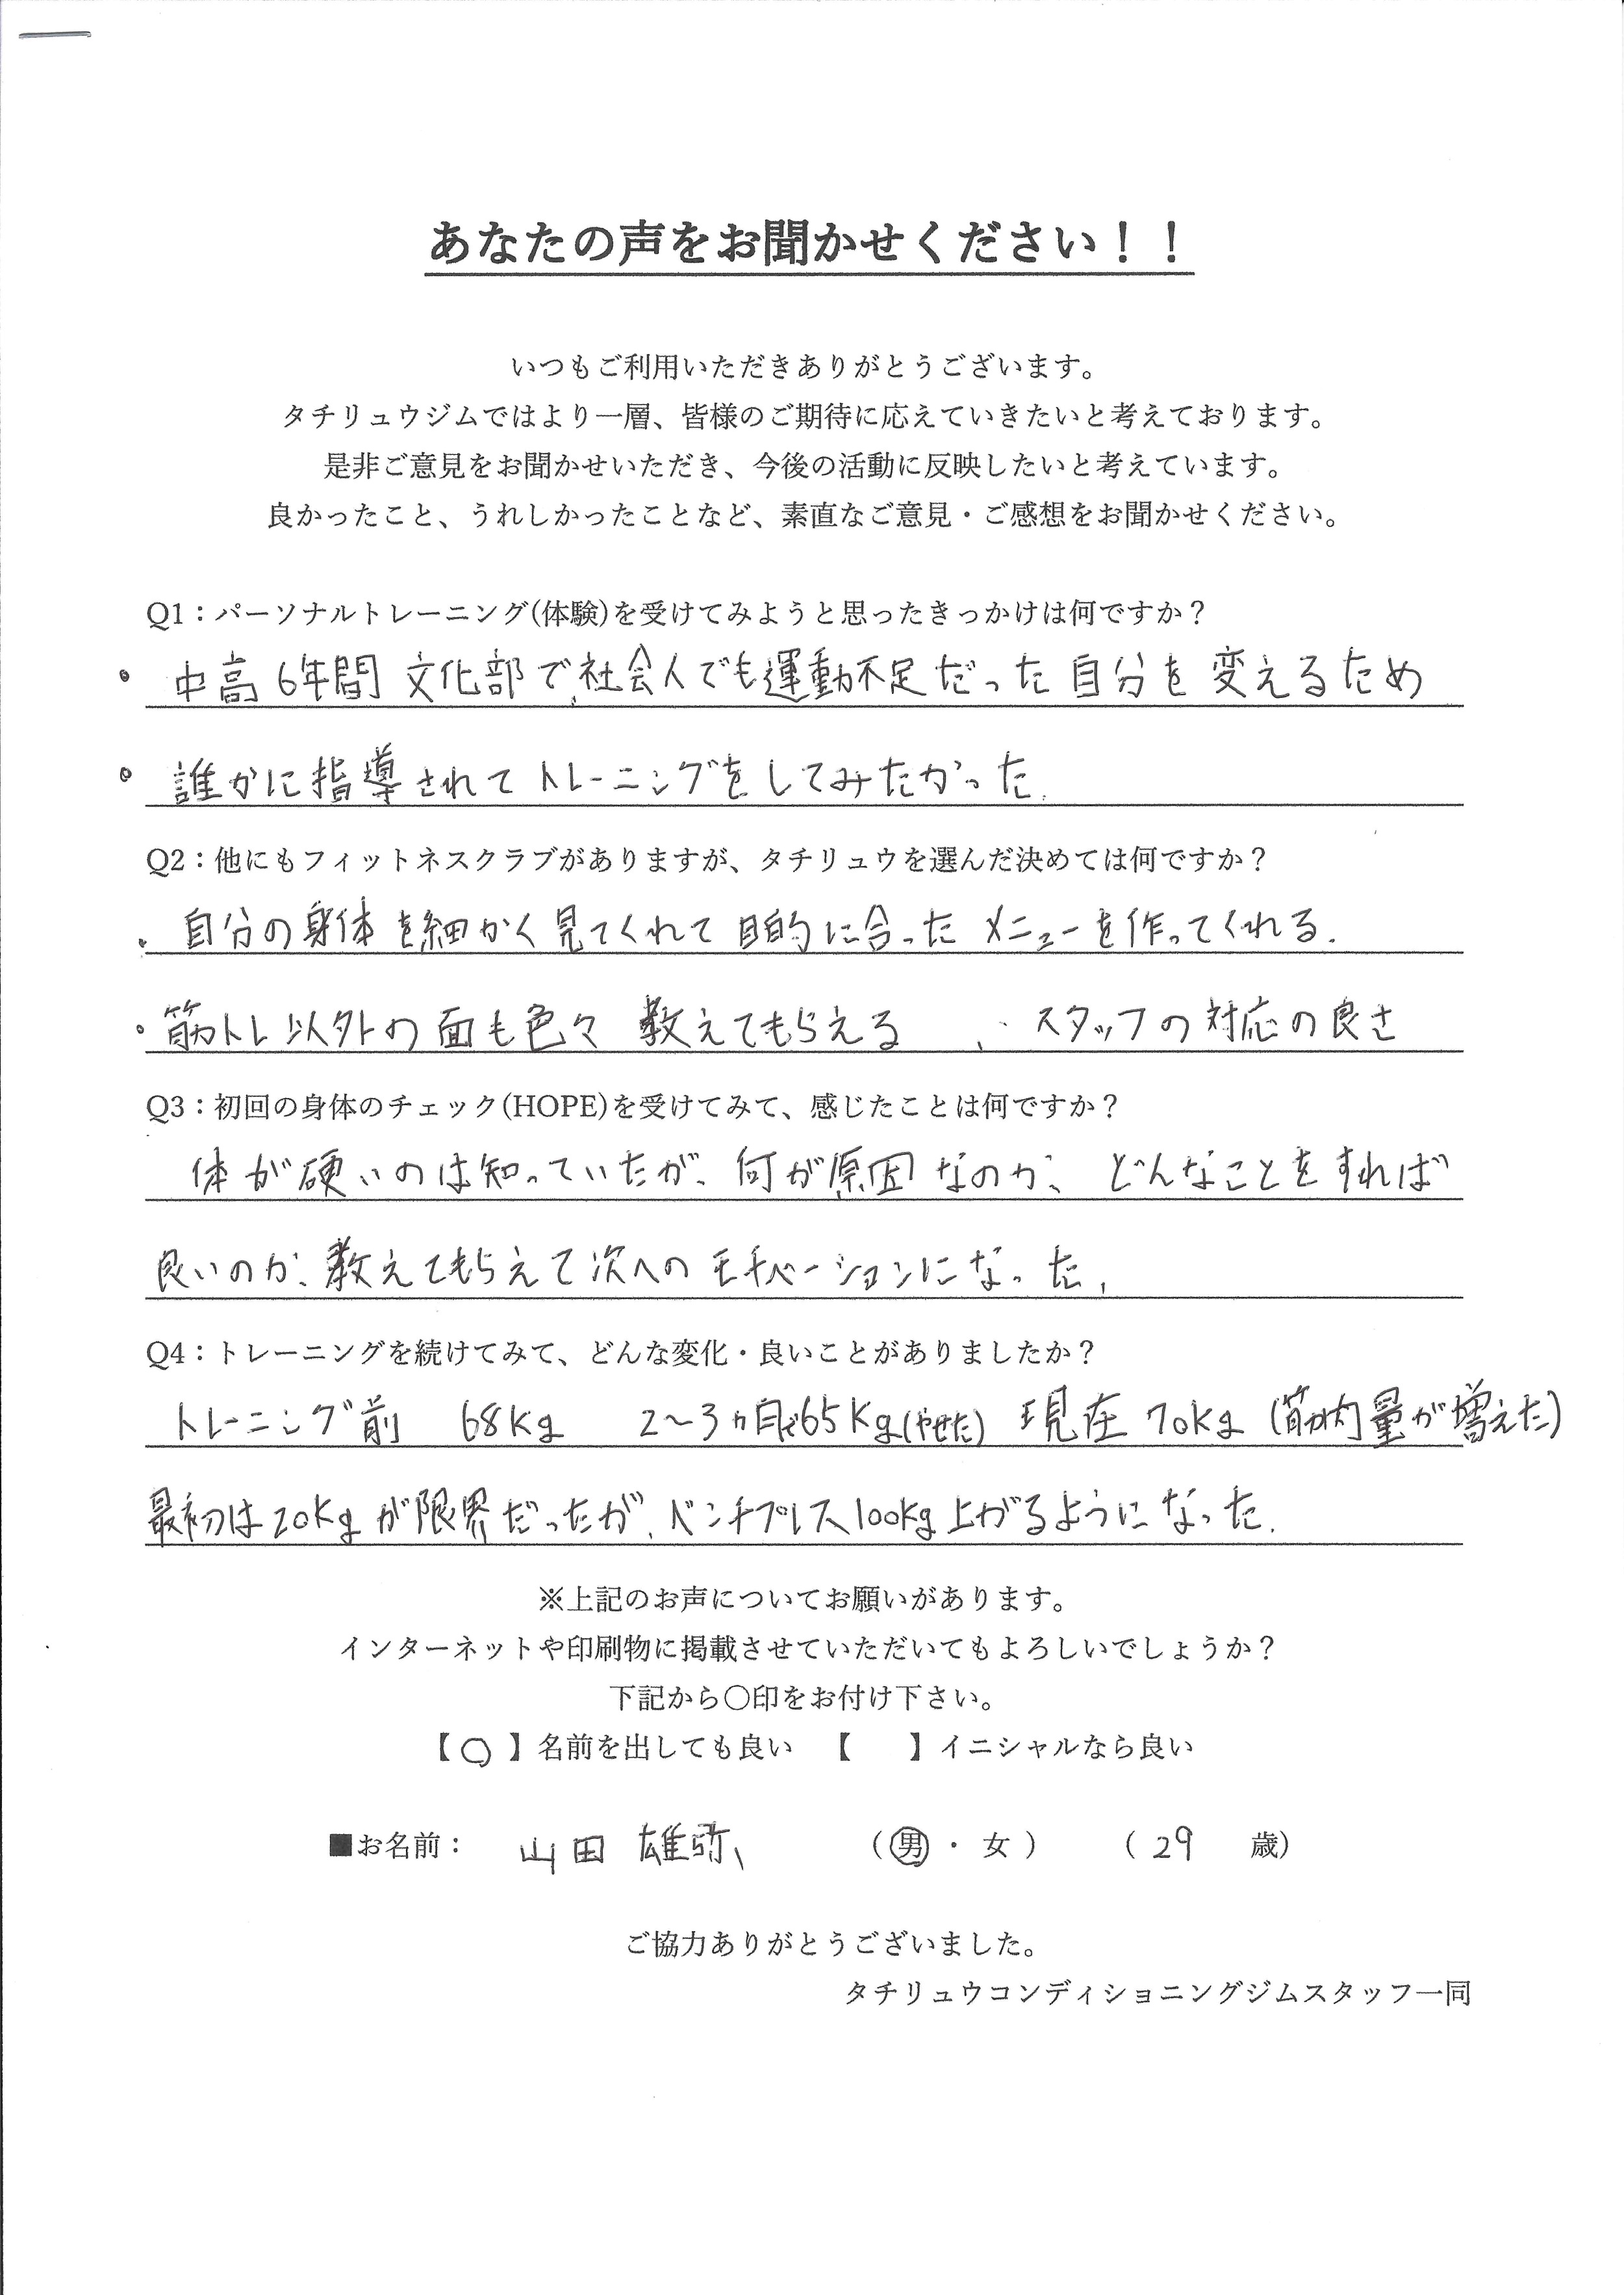 あなたの声をお聞かせください！！
いつもご利用いただきありがとうございます。
タチリュウジムではより一層、皆様のご期待に応えていきたいと考えております。
是非ご意見をお聞かせいただき、今後の活動に反映したいと考えています。
良かったこと、うれしかったことなど、素直なご意見・ご感想をお聞かせください。
Q1：パーソナルトレーニング(体験)を受けてみようと思ったきっかけは何ですか？
・中高6年間 文化部で、社会人でも運動不足だった自分を変えるため
・誰かに指導されてトレーニングをしてみたかった.
Q2：他にもフィットネスクラブがありますが、タチリュウを選んだ決めては何ですか？
・自分の身体を細かく見てくれて目的に合ったメニューを作ってくれる.
・筋トレ以外の面も色々教えてもらえる 、・スタッフの対応の良さ
Q3：初回の身体のチェック(HOPE)を受けてみて、感じたことは何ですか？
体が硬いのは知っていたが、何が原因なのか、どんなことをすれば
良いのか、教えてもらえて次へのモチベーションになった,
Q4：トレーニングを続けてみて、どんな変化・良いことがありましたか？
トレーニング前 68Kg 2～3ヵ月で65Kg(やせた) 現在70kg (筋肉量が増えた)
最初は20Kgが限界だったが、ベンチプレス100Kg上がるようになった.
※上記のお声についてお願いがあります。
インターネットや印刷物に掲載させていただいてもよろしいでしょうか？
下記から〇印をお付け下さい。
【〇】名前を出しても良い 【 】イニシャルなら良い
■お名前： 山田 雄弥 （男・女） （29 歳）
ご協力ありがとうございました。
タチリュウコンディショニングジムスタッフ一同